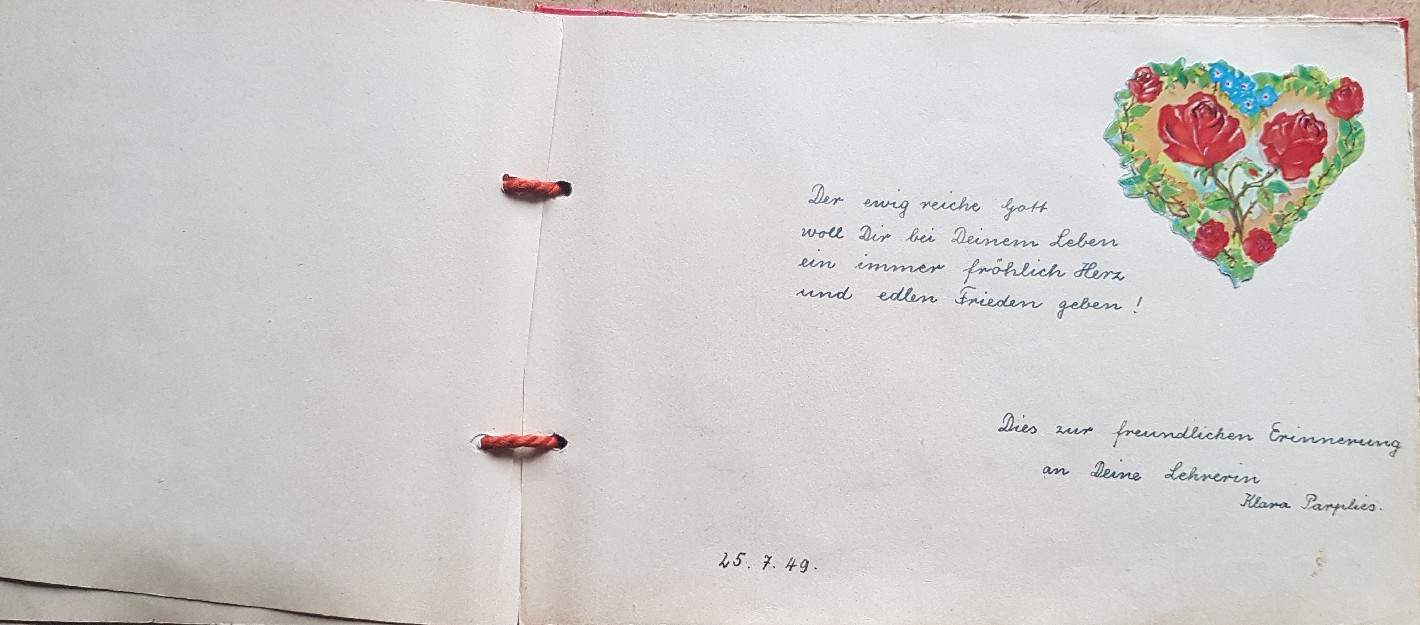 Der ewig reiche Gott
woll Dir bei Deinem Leben
ein immer fröhlich Herz
und edlen Frieden geben!
Dies zur freundlichen Erinnerung
an Deine Lehrerin
Klara Parplies.
25. 7. 49.